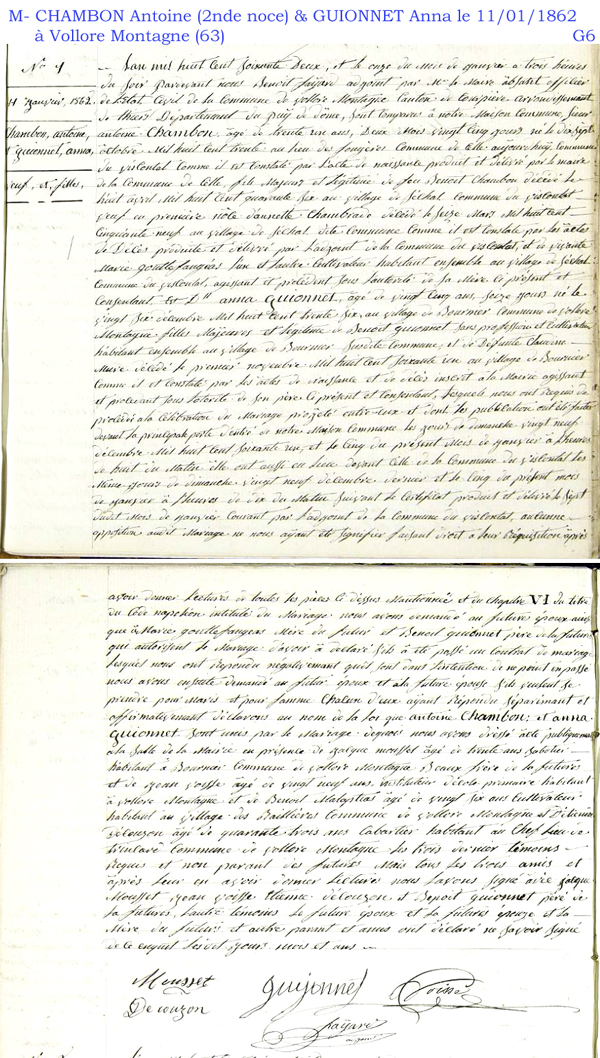 M- CHAMBON Antoine (2nde noce) & GUIONNET Anna le 11/01/1862
à Vollore Montagne (63)
G6
N° 1
11 janvier, 1862.
Chambon, antoine,
& guionnet, anna,
veuf, et, filles,
L'an mil huit Cent Soixante Deux, et le onze du Mois de janvier a trois heures
du Soir paravant nous Benoit fayard adjoint par Mr le Maire absant officier
de létat Civil de la Commune de vollore Montagne Canton de Courpière arrondissement
de thiers Département du puy de dôme, Sont Comparus à notre Maison Commune Sieur
antoine Chambon, agé de trente un ans, Deux Mois vingt Cinq jours né le dix Sept
octobre Mil huit Cent trente au lieu des fougères Commune de Celle aujourd'huy Commune
du viscontat Comme il est Constaté par l'acte de naissance produit et délivré par le maire
de la Commune de Celle, fils Majeure et légitime de feu Benoit Chambon décédé le
huit avril Mil huit Cent quarante Six au village de Séchal Commune du viscontat
veuf en première noce d'annette Chambriade décédé le Seize Mars Mil huit Cent
Cinquante neuf au village de Séchal dite Commune Comme il est Constaté par les actes
de Décès produite et délivré par l'adjoint de la Commune du viscontat, et de vivante
Marie gouttefangeas l'un et l'autre Cultivateur habitant ensemble au village de Séchal
Commune du viscontat, agissant et procédent Sous l'autorité de Sa Mère Ci présent et
Consentant. Et Dlle anna guionnet, age de vingt Cinq ans, Seize jours né le
vingt Six décembre Mil huit Cent trente Six, au village de Bournier Commune de vollore
Montagne filles Majeures et légitime de Benoit guionnet Sans profession et Cultivateur
habitant ensemble au village de Bournier Susdite Commune, et de Défunte Claudine
Maire décédé le premier novembre Mil huit Cent Soixante un au village de Bournier
Comme il est Constaté par les actes de Naissance et de décès inscrit à la Mairie agissant
et procédant Sous l'autorité de Son père Ci présent et Consentant, lesquels nous ont Requis de
procéder à la Célébration du Mariage projeté entre-eux et dont les publication ont été faites
devant la principale porte d'entré de notre Maison Commune les jours de dimanche vingt neuf
décembre Mil huit Cent Soixante un, et le Cinq du présent Mois de janvier à heures
de huit du Matin elle ont aussi eu lieu devant Celle de la Commune du viscontat les
Même jours de dimanche vingt neuf décembre dernier et le Cinq du présent mois
de janvier à heures de dix du Matin Suivant le Certificat produit et délivré le Sept
dudit Mois de janvier Courant par l'adjoint de la Commune du viscontat, aucunne
opposition audit Mariage ne nous ayant été Signifier faisant droit à leur Réquisition après
avoir donner lectures de toutes les pièces Ci dessus Mentionnée et du chapitre VI du titre
du Code napoléon intitulé du Mariage nous avons demandé au futures époux ainsi
que à Marie gouttefangeas Mère du futur et Benoit guionnet père de la future
qui autorisent le Mariage d'avoir à déclaré S'ils à été passé un Contrat de mariage
lesquels nous ont répondu négativement quils Sont dans l'intention de ne point en passé
nous avons ensuite demandé au futur époux et à la future épouse S'ils veulent Se
prendre pour Maris et pour femme Chacun d'eux ayant Répondu Séparément et
affirmativement déclarons au nom de la loi que antoine Chambon; et anna
guionnet Sont unis par le Mariage dequoi nous avons dressé acte publiquement
à la Salle de la Mairie en présence de jacque mousset âgé de trente ans Sabotier
habitant à Bournier Commune de vollore Montagne Beaux frère de la futures
et de jean voisse âgé de vingt neuf ans instituteur d'école primaire habitant
à vollore Montagne et de Benoit Malaptias âgé de vingt Six ans Cultivateur
habitant au village des Baillères Commune de vollore Montagne et d'étienne
Decouzon âgé de quarante trois ans Cabartier habitant au Chef lieu de
Commune de vollore Montagne les trois dernier témoins
Requis et non parant des futures Mais tous les trois amis et
après leur en avoir donner lectures nous l'avons Signé avec jacque
Mousset, jean voisse Etienne decouzon, et Benoit guionnet père de
la futures, l'autre témoins le futur époux et la futures épouze et la
Mère du futur et autre parant et amis ont déclaré ne Savoir Signé
de Ce enquis lesdit jours mois et ans
Mousset
guyonnet
Voisse
Decouzon
fayard